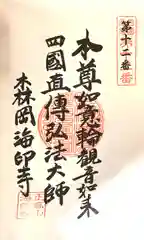 第十二番
本尊如意輪觀音如来
四國直傳弘法大師
木林岡海印寺